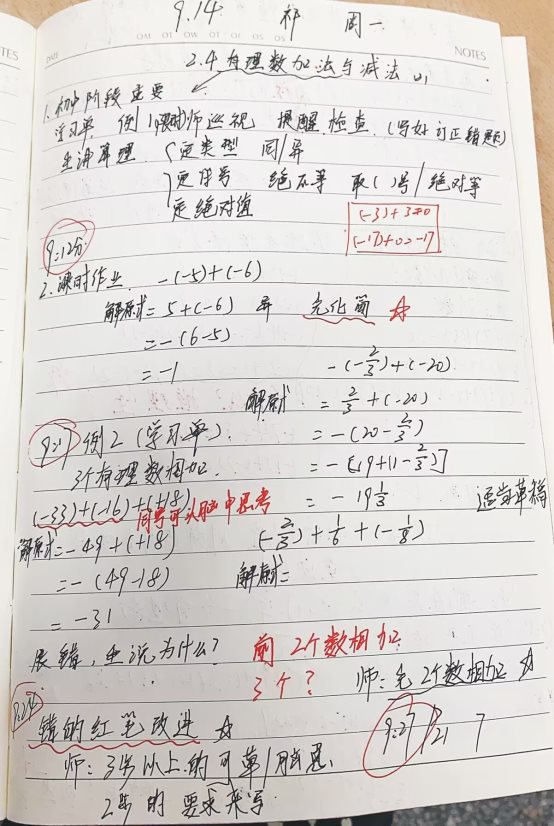 NOTES
NOTES
DATE
9.14 祁 周一
2.4 有理数加法与减法 (1)
1.初中阶段重要
学习单 例1(限时)师巡视 提醒.检查.(写好订正错题)
生讲算理. 定类型 同/异
定符号 绝不等 取( )号/绝对等
定绝对值
(-3)+3=0
(-17)+0=-17
9:12分
2.课时作业. -(-5)+(-6)
解原式=5+(-6) 异 先化简 ☆
=-(6-5)
=-1
-(-2/3)+(-20)
解原式 = 2/3+(-20)
=-(20-2/3)
=-[19+(1-2/3)]
=-19 1/3 适当草稿
9:17 例2(学习单).
3个有理数相加.
(-33)+(-16)+(+18) 同号可以脑中思考
解原式=-49+(+18)
=-(49-18)
=-31
(-2/3)+1/6+(-1/8)
解原式=
展错,生说为什么? 前2个数相加
3个? 师:先2个数相加 ☆
9:24
错的红笔改进 ☆ 9:27
师:3步以上的可草/脑思.
2步的要求来写